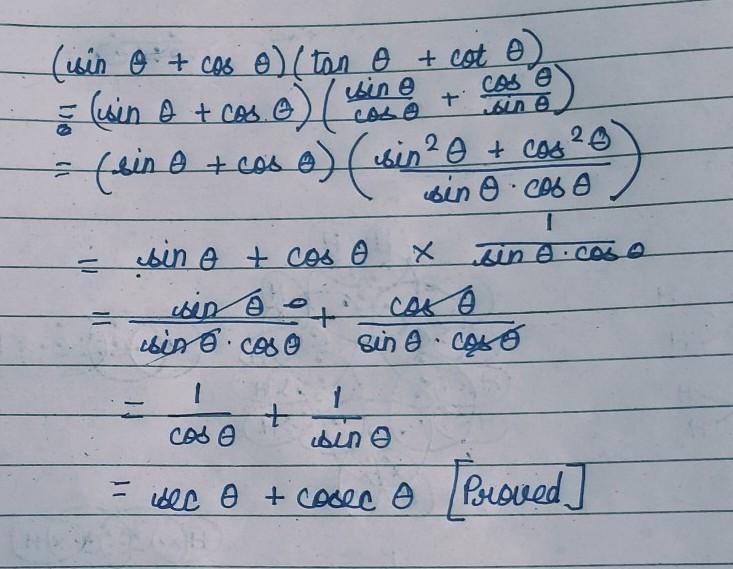 (sin θ + cos θ)(tan θ + cot θ)
= (sin θ + cos θ)(sin θ/cos θ + cos θ/sin θ)
= (sin θ + cos θ)((sin²θ + cos²θ)/(sin θ · cos θ))
= sin θ + cos θ × 1/(sin θ · cos θ)
= sin θ/(sin θ · cos θ) + cos θ/(sin θ · cos θ)
= 1/cos θ + 1/sin θ
= sec θ + cosec θ [Proved]